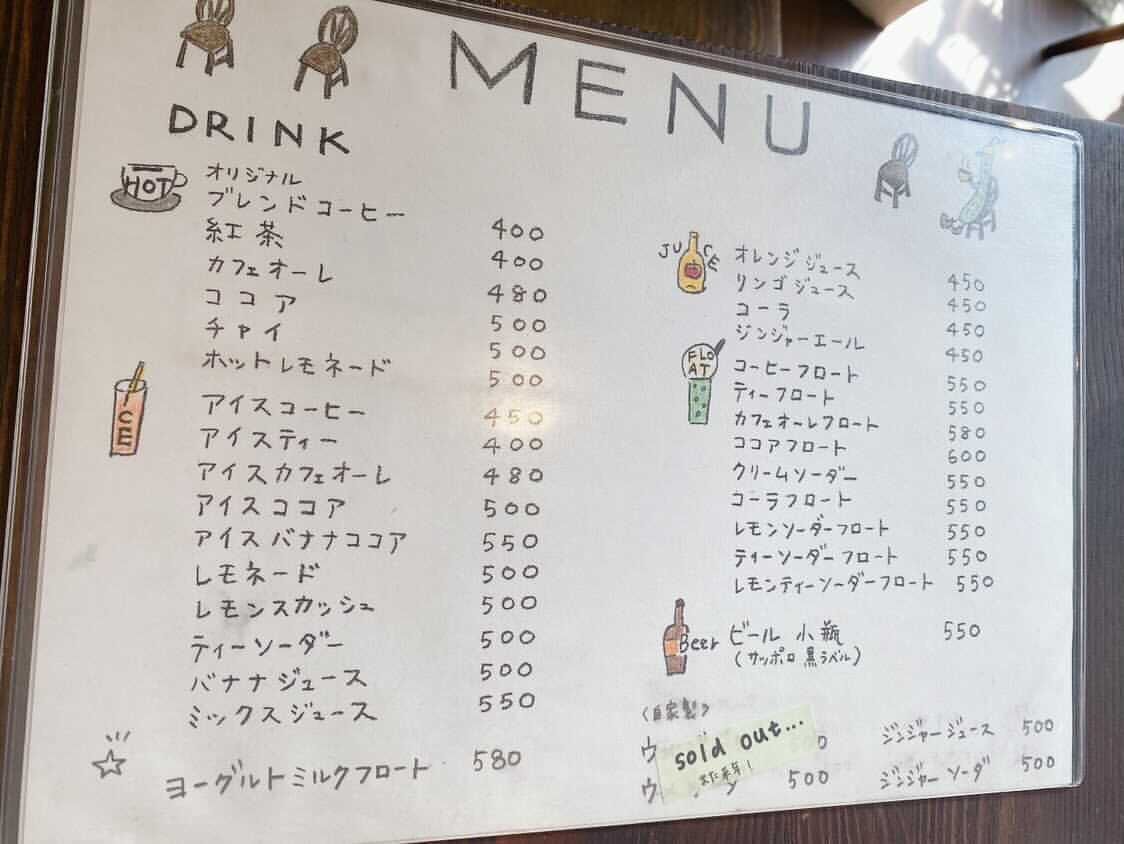 MENU
DRINK
HOT
オリジナル
ブレンドコーヒー 400
紅茶 400
カフェオーレ 480
ココア 500
チャイ 500
ホットレモネード 500
ICE
アイスコーヒー 450
アイスティー 400
アイスカフェオーレ 480
アイスココア 500
アイスバナナココア 550
レモネード 500
レモンスカッシュ 500
ティーソーダー 500
バナナジュース 500
ミックスジュース 550
ヨーグルトミルクフロート 580
JUICE
オレンジジュース 450
リンゴジュース 450
コーラ 450
ジンジャーエール 450
FLOAT
コーヒーフロート 550
ティーフロート 550
カフェオーレフロート 580
ココアフロート 600
クリームソーダー 550
コーラフロート 550
レモンソーダーフロート 550
ティーソーダーフロート 550
レモンティーソーダーフロート 550
Beer ビール 小瓶 550
(サッポロ黒ラベル)
<自家製>
sold out...
また来年!
500
ジンジャージュース 500
ジンジャーソーダ 500